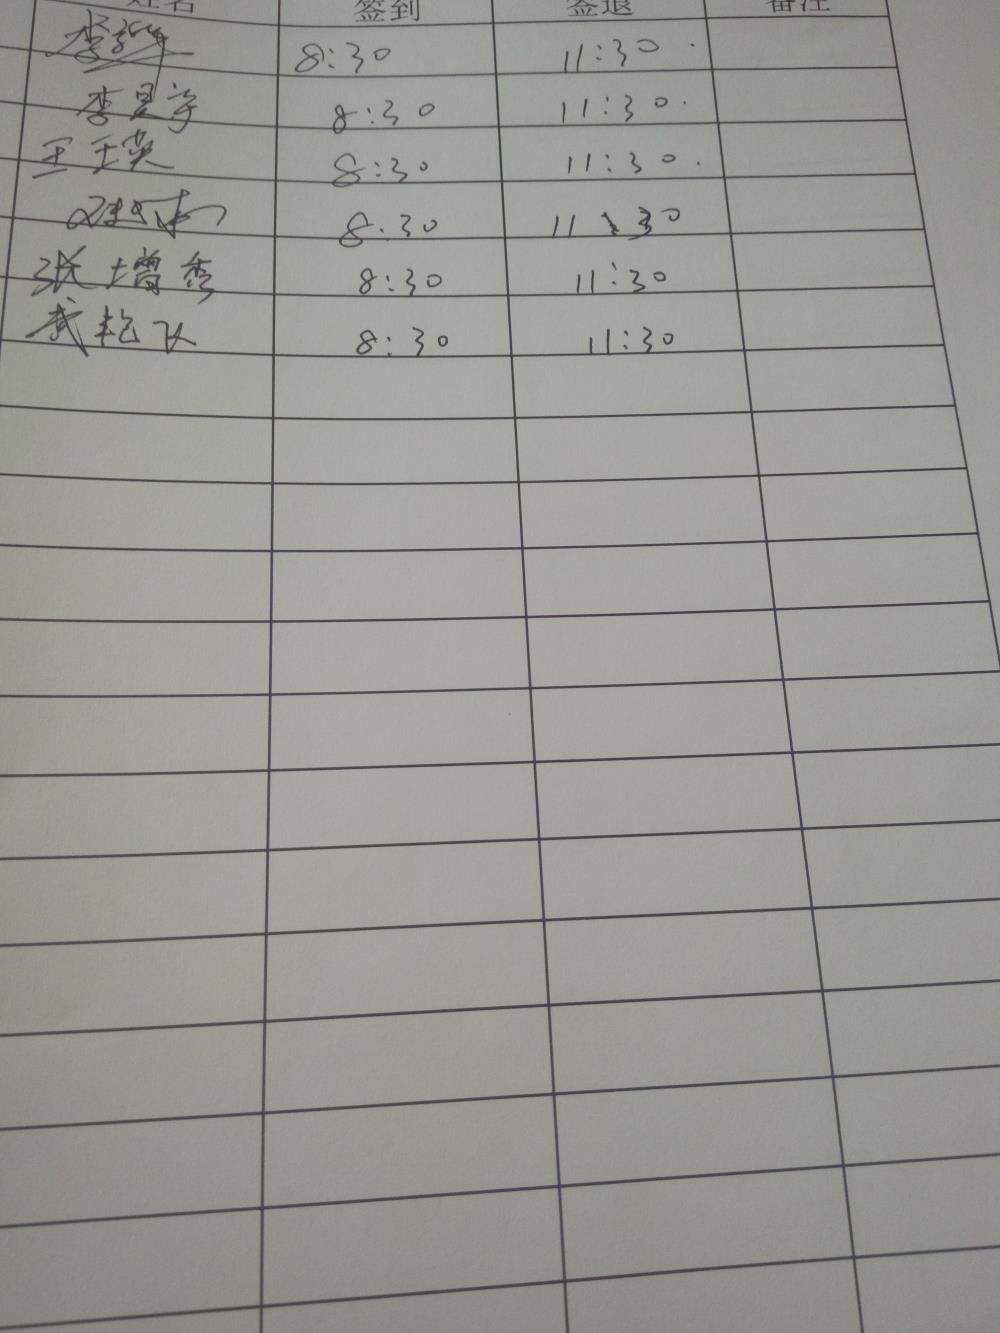 姓名 签到 签退 备注
李 8:30 11:30
李昊宇 8:30 11:30
王玉英 8:30 11:30
8:30 11:30
张增秀 8:30 11:30
武艳飞 8:30 11:30